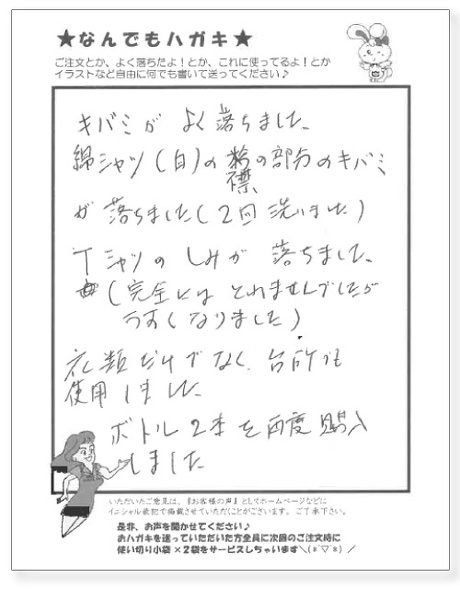 ★なんでもハガキ★
ご注文とか、よく落ちたよ!とか、これに使ってるよ!とか
イラストなど自由に何でも書いて送ってください♪
キバミが よく落ちました。
綿シャツ(白)の の部分のキバミ
襟
が 落ちました(2回洗いました)
Tシャツの しみが 落ちました。
(完全には とれませんでしたが
うすくなりました)
衣類だけでなく、台所でも
使用しました。
ボトル2本を再度購入
しました
いただいたご意見は、『お客様の声』としてホームページなどに
イニシャル表記で掲載させていただくことがございます。ご了承下さい。
是非、お声を聞かせてください♪
おハガキを送っていただいた方全員に次回のご注文時に
使い切り小袋×2袋をサービスしちゃいます＼(*´▽`*)／